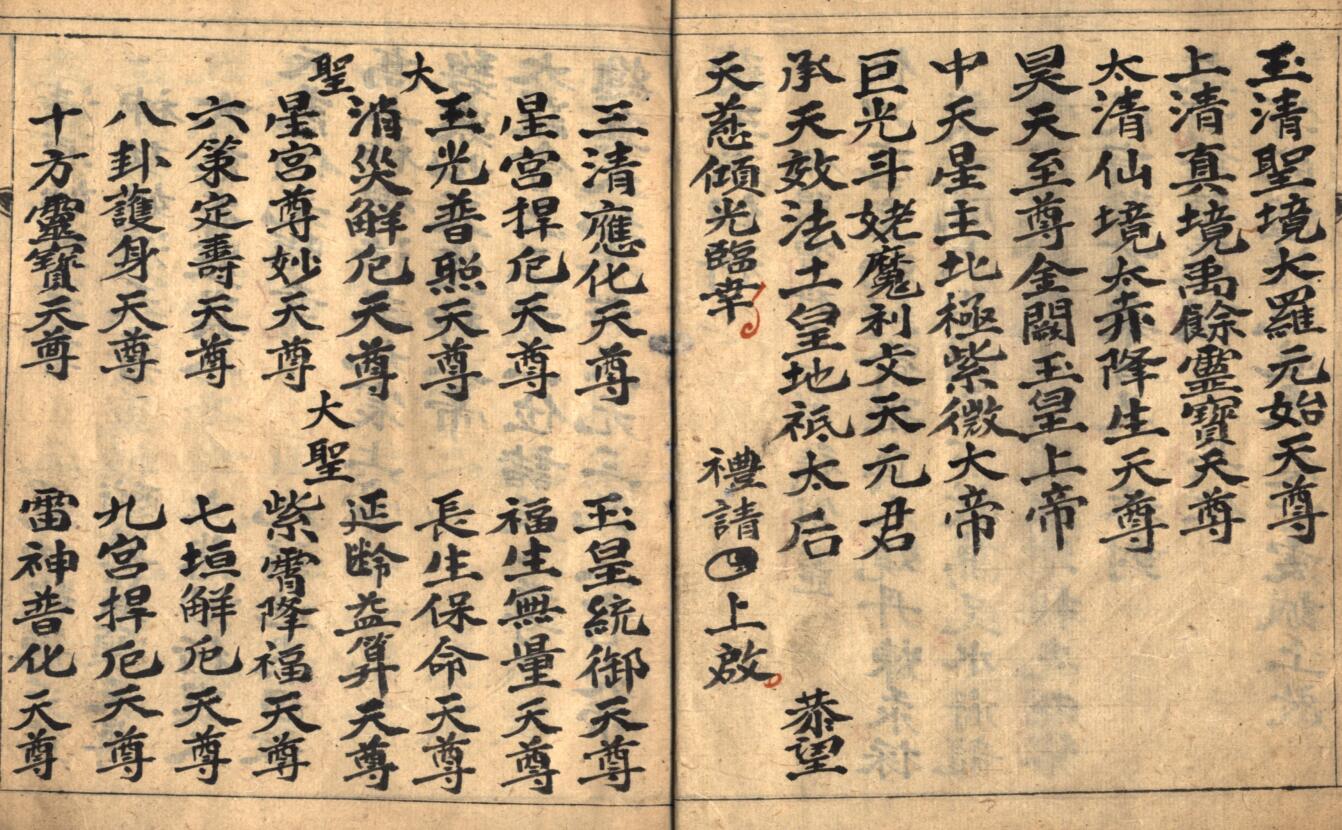 玉清聖境大羅元始天尊
上清真境禹餘靈寶天尊
太清仙境太赤降生天尊
昊天至尊金闕玉皇上帝
中天星主北極紫微大帝
巨光斗姥魔利攴天元君
承天效法土皇地祇太后 恭望
天慈傾光臨幸 禮請 上啟
三清應化天尊 玉皇統御天尊
星宮捍厄天尊 福生無量天尊
大聖
玉光普照天尊 長生保命天尊
消災觧厄天尊 延齡益筭天尊
大聖
星宮尊妙天尊 紫霄降福天尊
六策定壽天尊 七垣觧厄天尊
八卦護身天尊 九宮捍厄天尊
十方靈寶天尊 雷神普化天尊